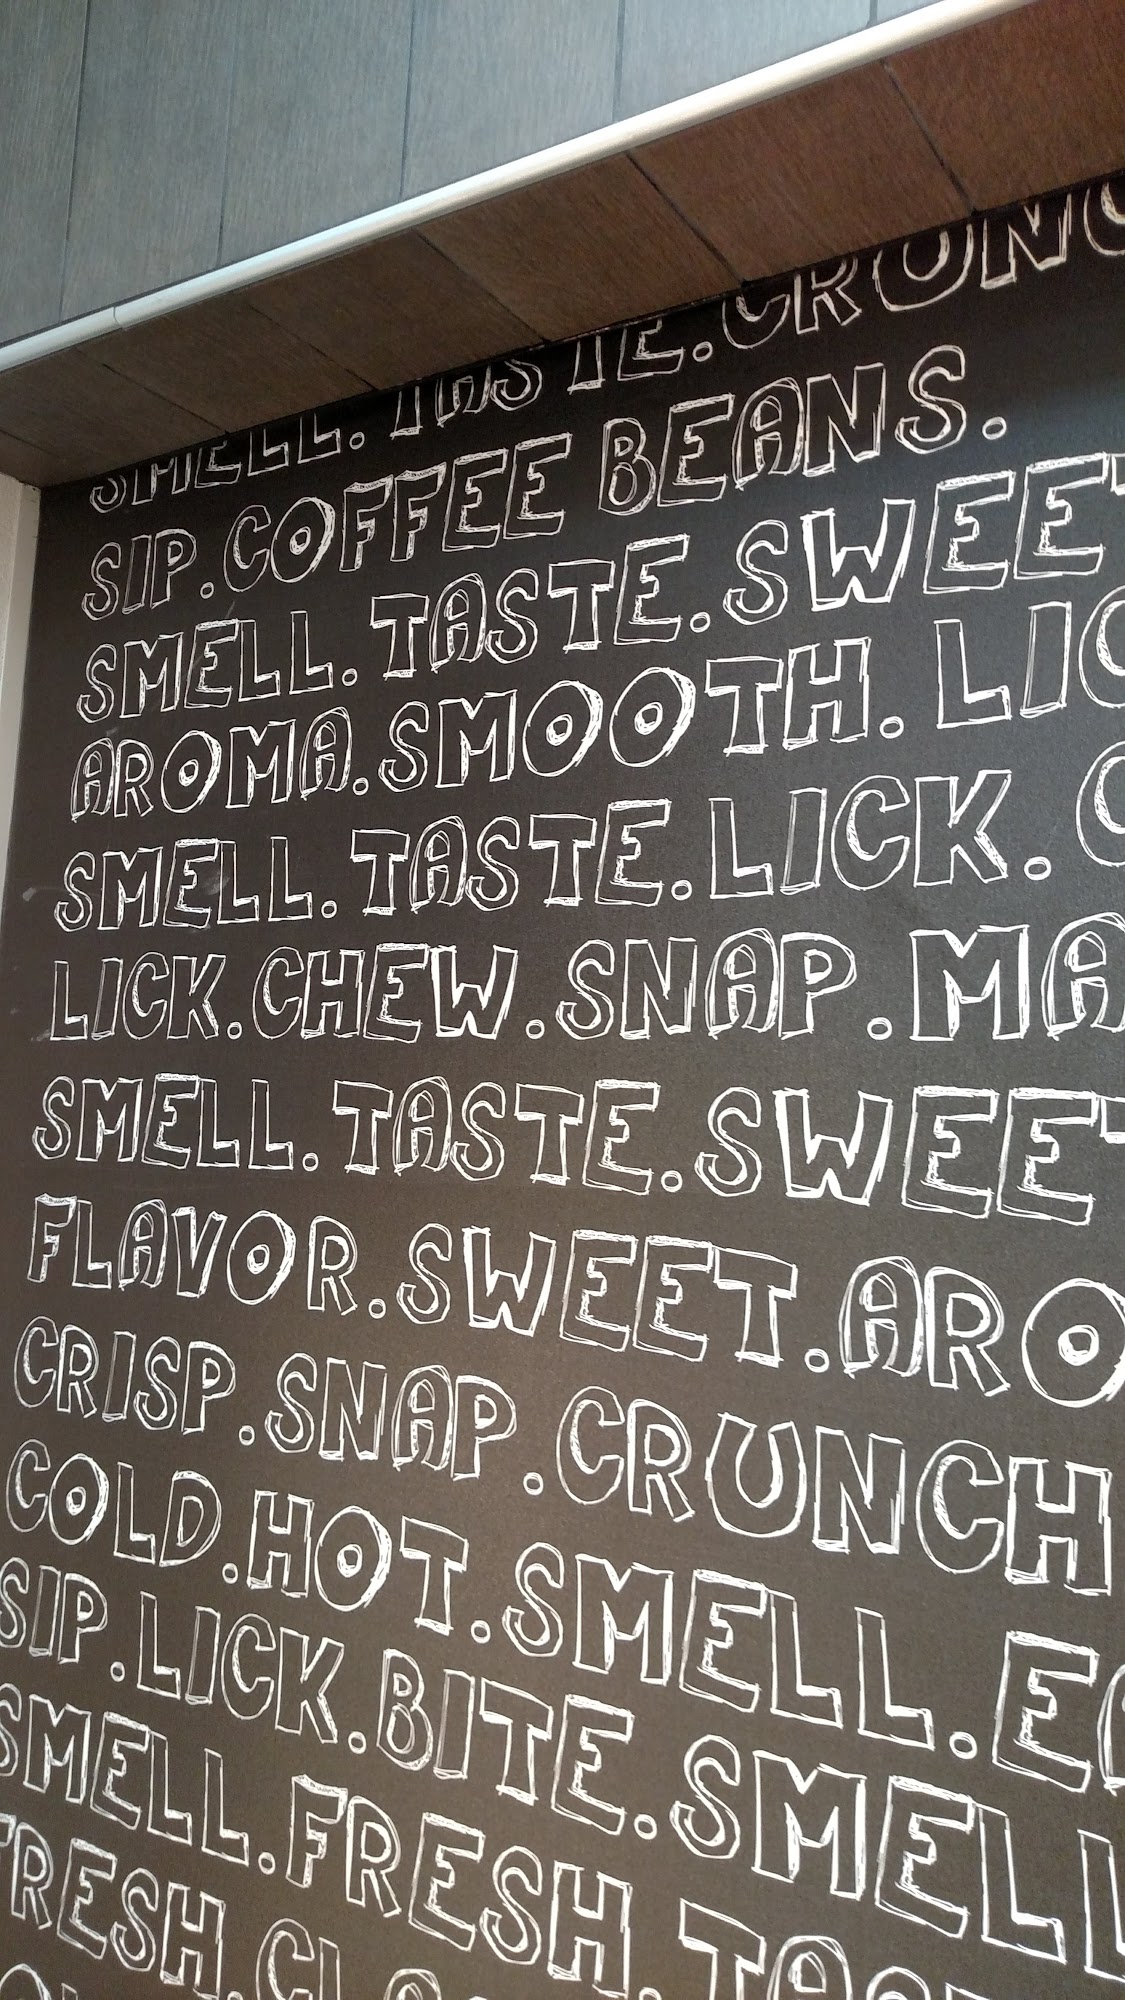 SMELL. TASTE. CRUNC
SIP. COFFEE BEANS.
SMELL. TASTE. SWEET
AROMA. SMOOTH. LIC
SMELL. TASTE. LICK. C
LICK. CHEW. SNAP. MA
SMELL. TASTE. SWEET
FLAVOR. SWEET. ARO
CRISP. SNAP. CRUNCH
COLD. HOT. SMELL. EA
SIP. LICK. BITE. SMELL
SMELL. FRESH. TAST
FRESH.